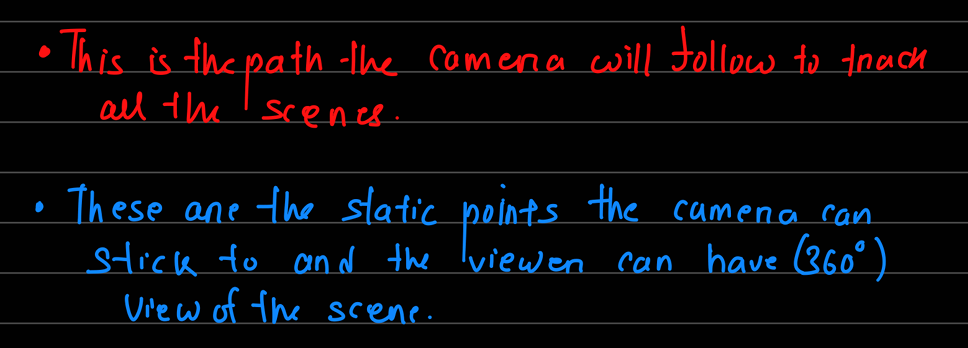 • This is the path the camera will follow to track
all the scenes.
• These are the static points the camera can
stick to and the viewer can have (360°)
view of the scene.